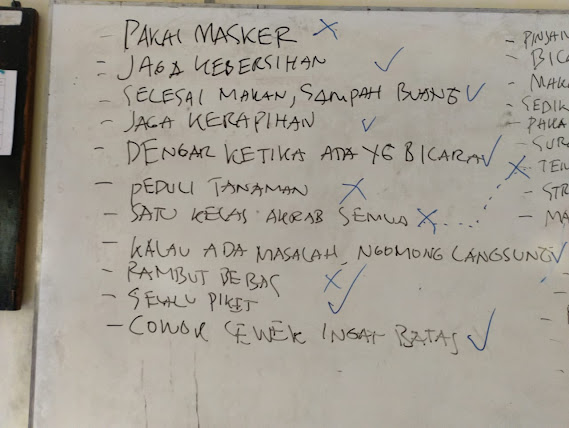 - PAKAI MASKER X
- JAGA KEBERSIHAN ✓
- SELESAI MAKAN, SAMPAH BUANG ✓
- JAGA KERAPIHAN ✓
- DENGAR KETIKA ADA YG BICARA ✓
- PEDULI TANAMAN X
- SATU KELAS AKRAB SEMUA X
- KALAU ADA MASALAH, NGOMONG LANGSUNG ✓
- RAMBUT BEBAS X
- SELALU PIKET ✓
- COWOK CEWEK INGAT BATAS ✓
- PINJAM
- BICA
- MAKA
- SEDIK
- PAKA
- SURA
X TEM
- STR
- MA